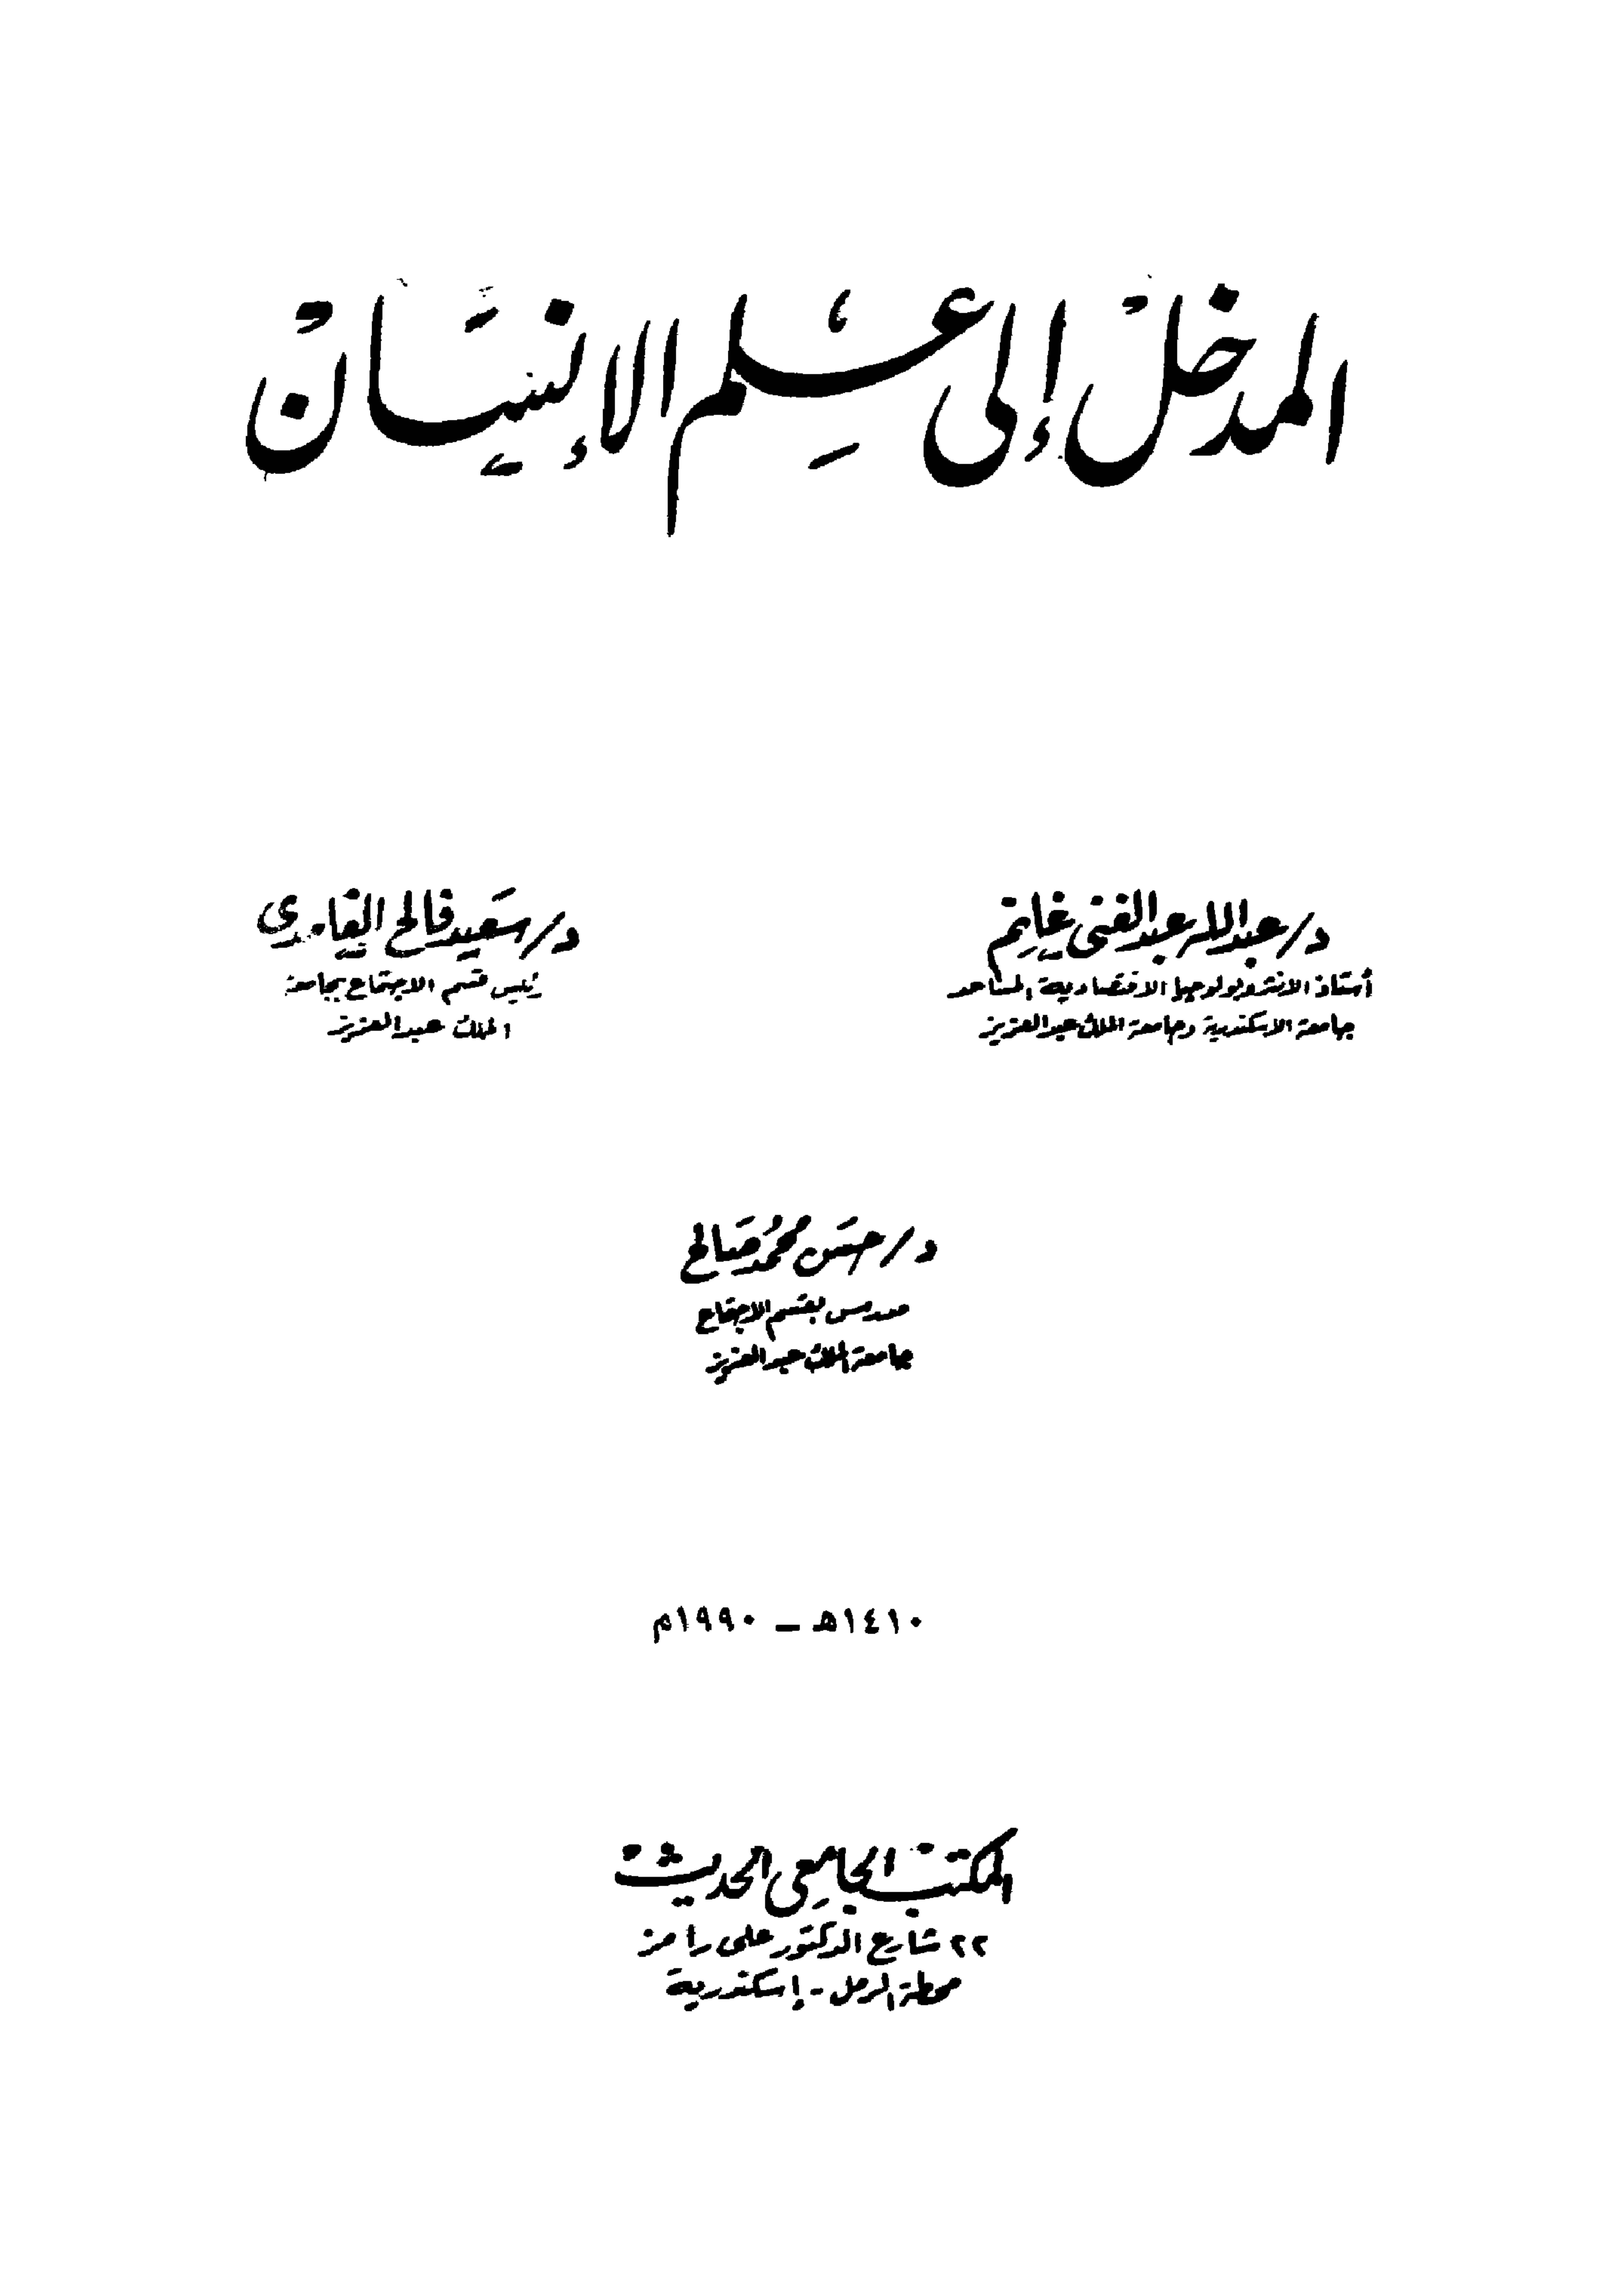 المدخل إلى علم الإنسان
د/ عبدالله عبدالغنى غانم
أستاذ الانثروبولوجيا الاقتصادية المساعد
جامعة الاسكندرية وجامعة الملك عبدالعزيز
د/ سعيد فالح الغامدى
رئيس قسم الاجتماع بجامعة
الملك عبدالعزيز
د/ حسن محمد صالح
مدرس بقسم الاجتماع
جامعة الملك عبدالعزيز
١٤١٠هـ – ١٩٩٠م
المكتب الجامعى الحديث
٢٢ شارع الدكتور على رامز
محطة الرمل - إسكندرية